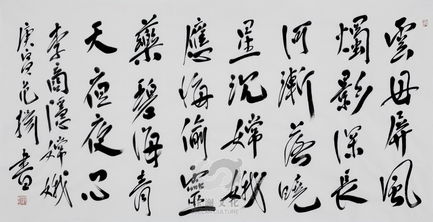 雲母屏風
燭影深長
河漸落曉
星沉嫦娥
應悔偷靈
藥碧海青
天夜夜心
李商隱嫦娥
庚寅范書